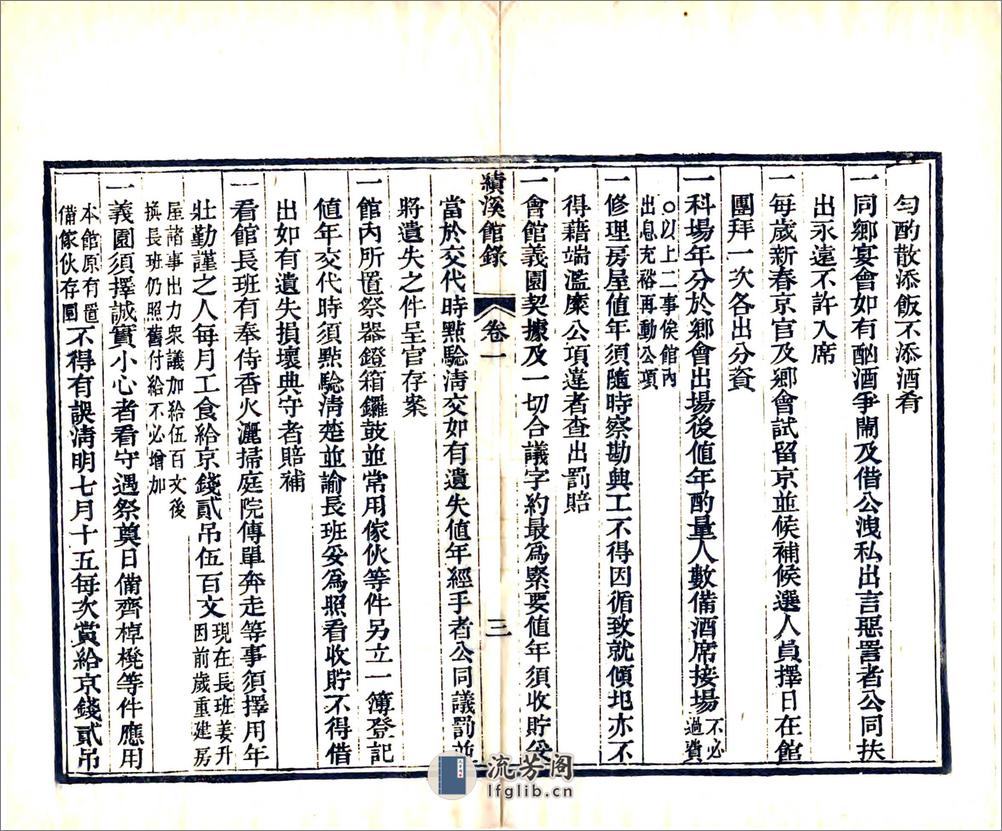 勻酌散添飯不添酒肴
一同鄉宴會如有酗酒爭鬧及借公洩私出言惡詈者公同扶
出永遠不許入席
一每歲新春京官及鄉會試留京並候補候選人員擇日在館
團拜一次各出分資
一科場年分於鄉會出場後值年酌量人數備酒席接場不必過費
○以上二事俟館內出息充裕再動公項
一修理房屋值年須隨時察勘興工不得因循致就傾圮亦不
得藉端濫糜公項違者查出罰賠
一會館義園契據及一切合議字約最為緊要值年須收貯妥
當於交代時點驗清交如有遺失值年經手者公同議罰並
將遺失之件呈官存案
一館內所置祭器鐙箱鑼鼓並常用傢伙等件另立一簿登記
值年交代時須點驗清楚並諭長班妥為照看收貯不得借
出如有遺失損壞典守者賠補
一看館長班有奉侍香火灑掃庭院傳單奔走等事須擇用年
壯勤謹之人每月工食給京錢貳吊伍百文現在長班姜升因前歲重建房
屋諸事出力眾議加給伍百文後撰長班仍照舊付給不必增加
一義園須擇誠實小心者看守遇祭奠日備齊棹櫈等件應用
本館原有置備傢伙存園不得有誤清明七月十五每次賞給京錢貳吊
績溪館錄
卷一
三
流芳阁
lfglib.cn